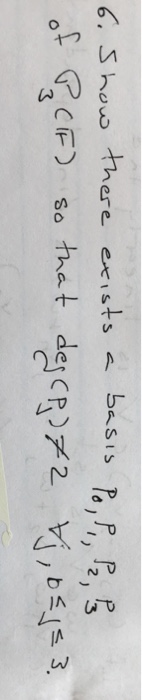 6. Show there exists a basis P₀, P₁, P₂, P₃
of 𝒫₃(𝔽) so that deg(Pⱼ) ≠ 2 ∀j, 0 ≤ j ≤ 3.